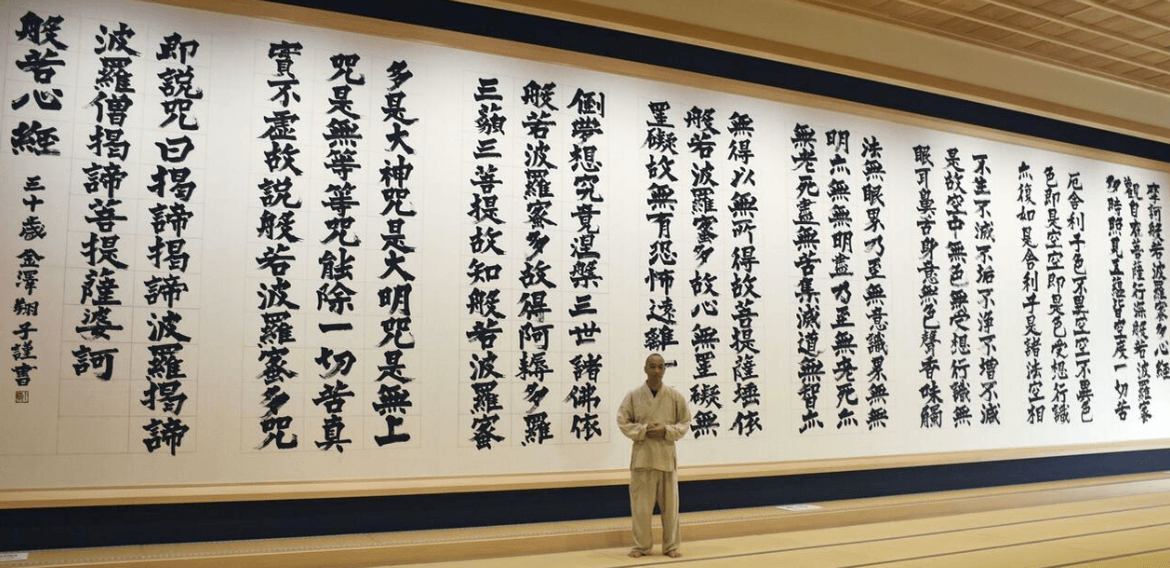 摩訶般若波羅蜜多心経
觀自在菩薩行深般若波羅蜜
多時照見五蘊皆空度一切苦
厄舍利子色不異空空不異色
色即是空空即是色受想行識
亦復如是舍利子是諸法空相
不生不滅不垢不浄不増不減
是故空中無色無受想行識無
眼耳鼻舌身意無色聲香味觸
法無眼界乃至無意識界無無
明亦無無明盡乃至無老死亦
無老死盡無苦集滅道無智亦
無得以無所得故菩提薩埵依
般若波羅蜜多故心無罣礙無
罣礙故無有恐怖遠離一
倒夢想究竟涅槃三世諸佛依
般若波羅蜜多故得阿耨多羅
三藐三菩提故知般若波羅蜜
多是大神咒是大明咒是無上
咒是無等等咒能除一切苦真
實不虛故説般若波羅蜜多咒
即説咒曰揭諦揭諦波羅揭諦
波羅僧揭諦菩提薩婆訶
般若心經
三十歳 金澤翔子謹書